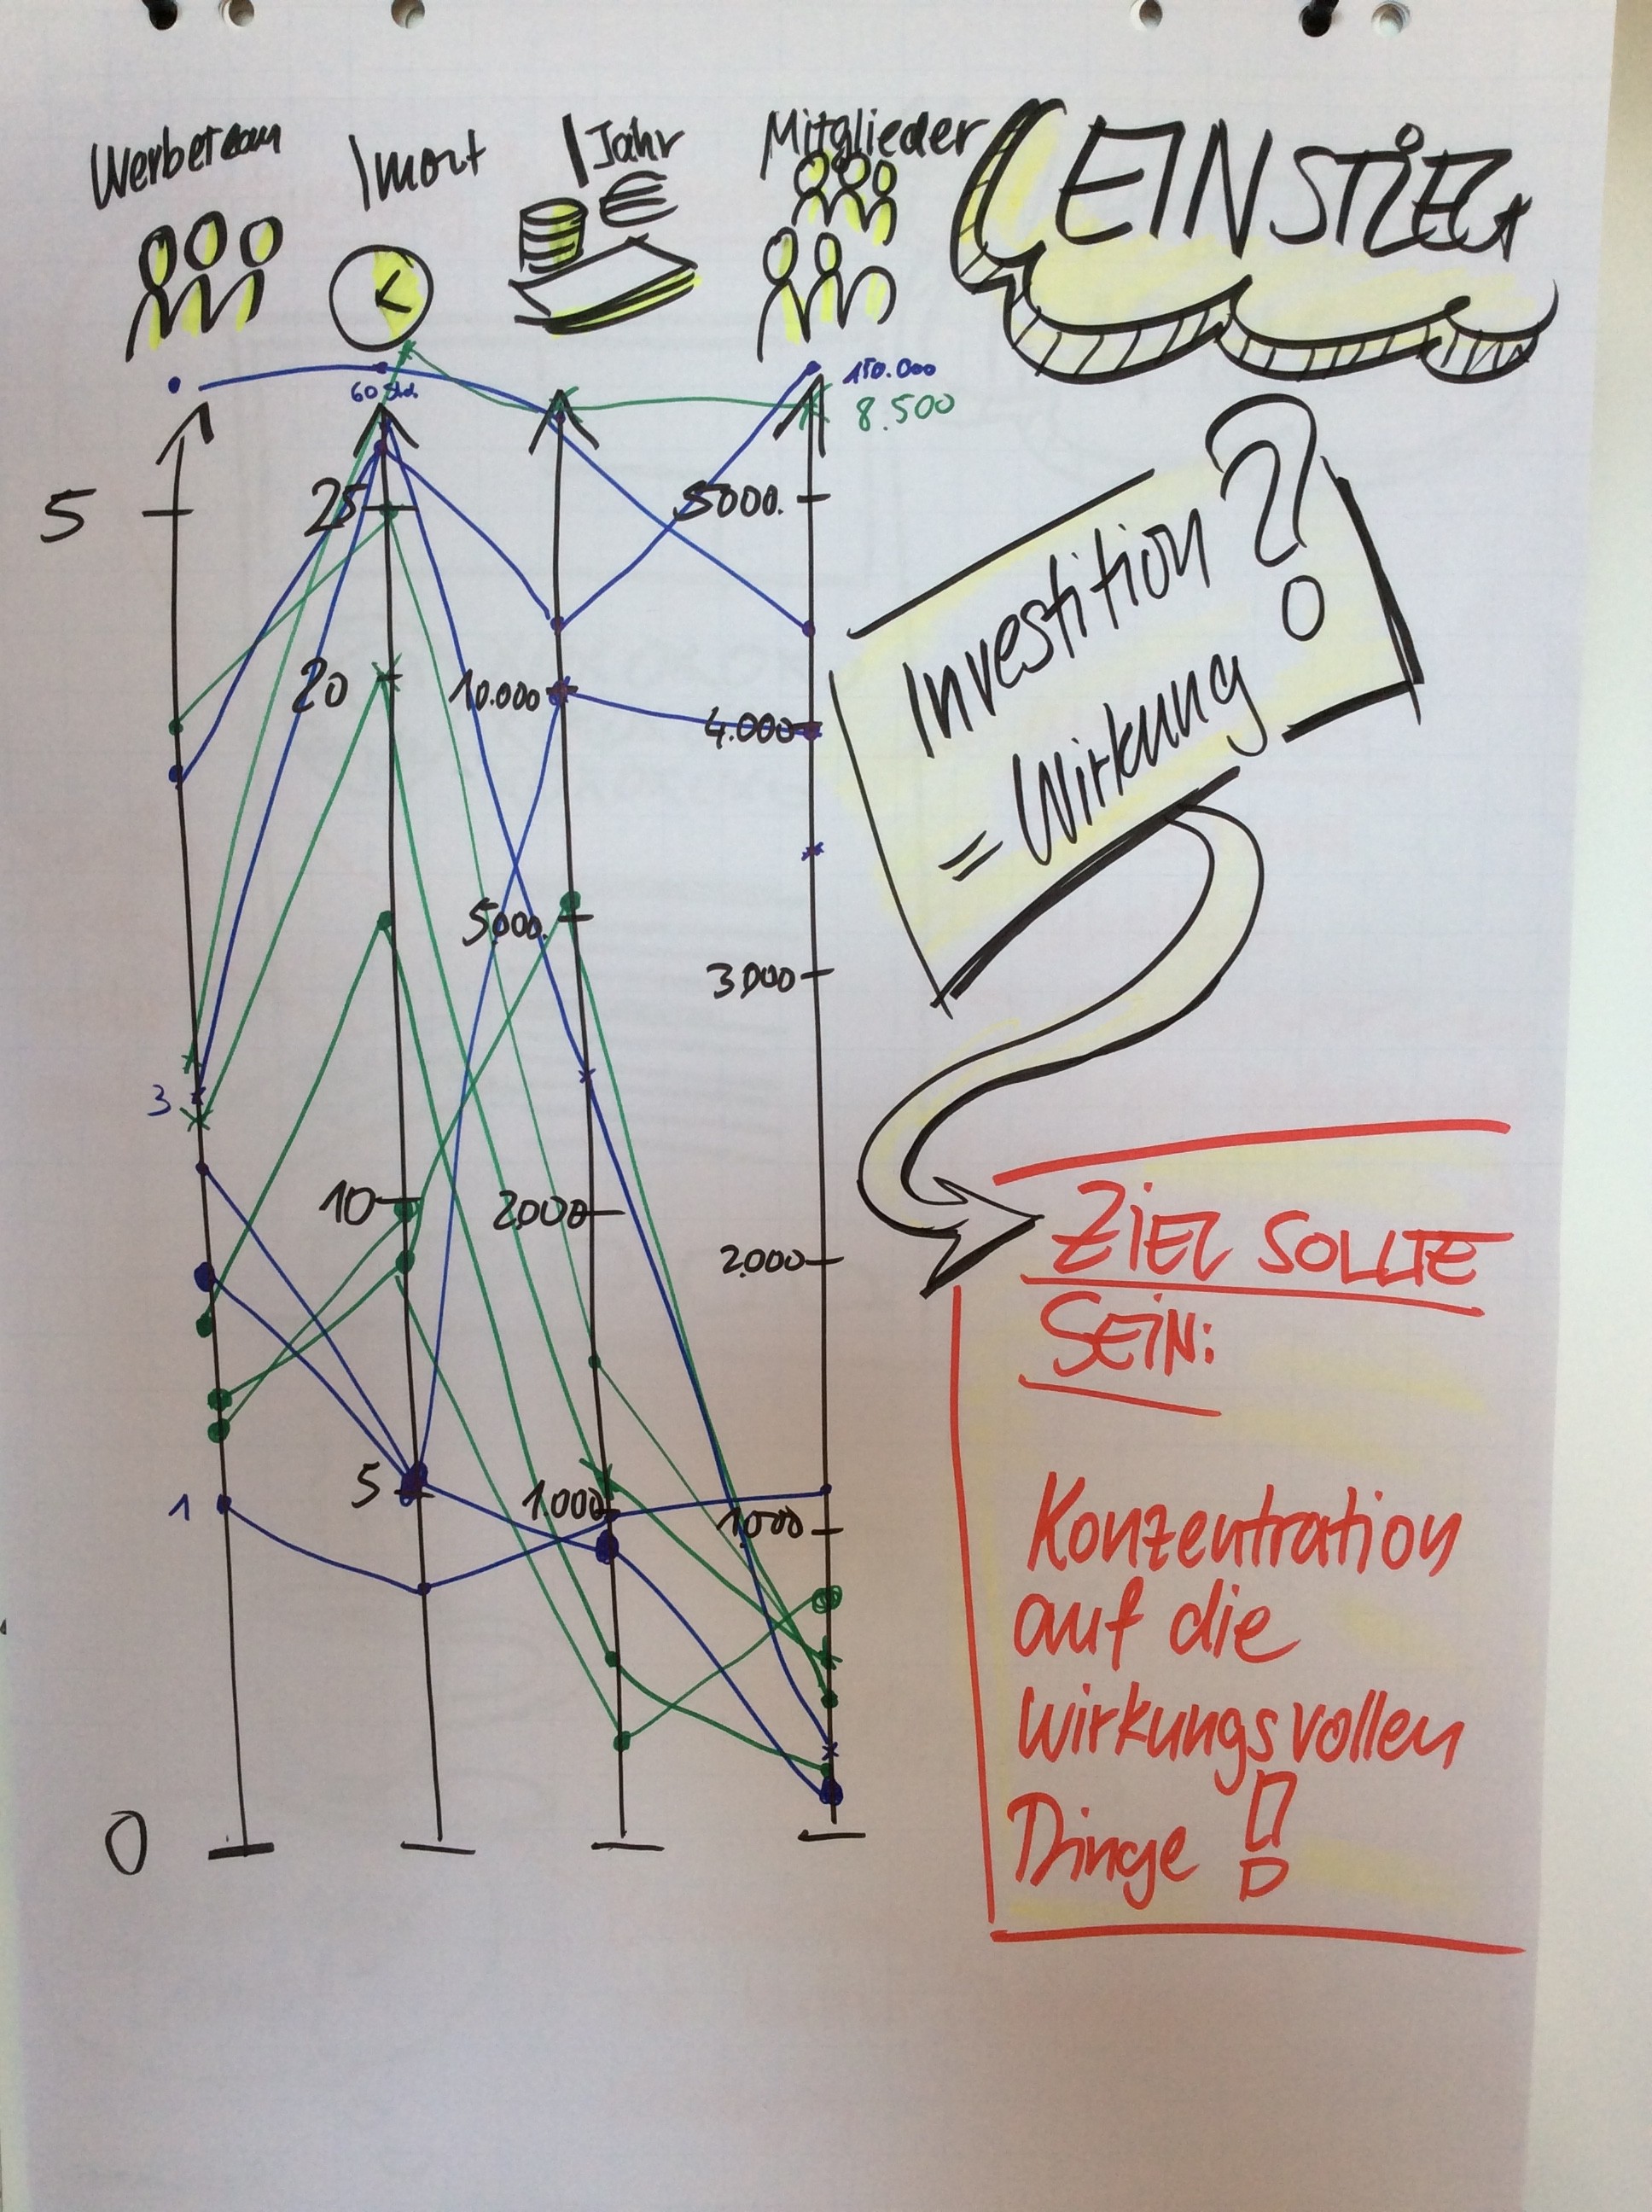 Werbeteam
/Mort
/Jahr
Mitglieder
€
EINSTIEG
60 Std.
150.000
8.500
5
25
5000.
20
10.000
4.000
Investition
= Wirkung
?
5.000.
3.000
3
10
2000
2.000
ZIEL SOLLTE
SEIN:
1
5
1.000
1000
Konzentration
auf die
wirkungsvollen
Dinge !
0